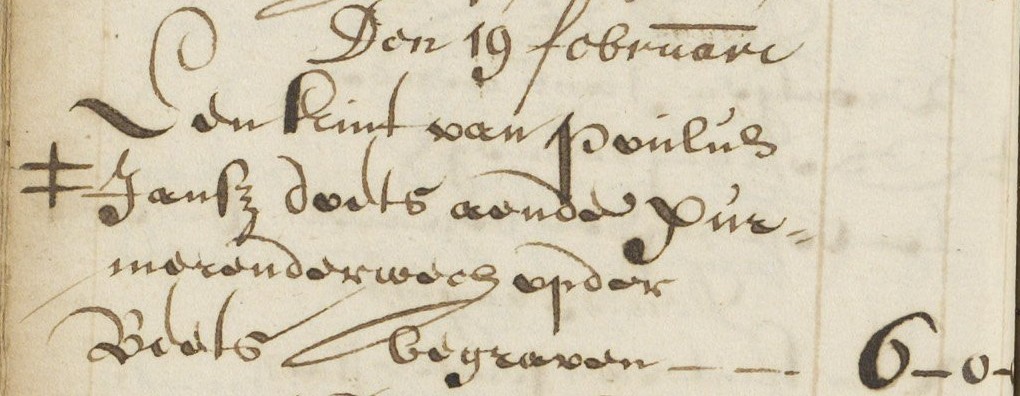 Den 19 februarii
Een kint van Poulus
Jansz doets aende Pur=
merenderwech opder
Beets begraven — — 6 – 0 –